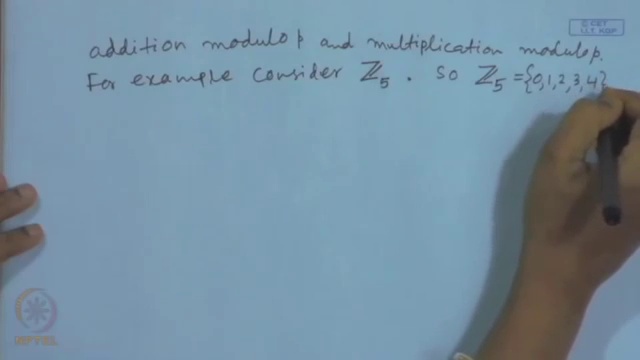 © CET
I.I.T. KGP
addition modulo p and multiplication modulo p.
For example consider ℤ₅. So ℤ₅ = {0,1,2,3,4}
NPTEL